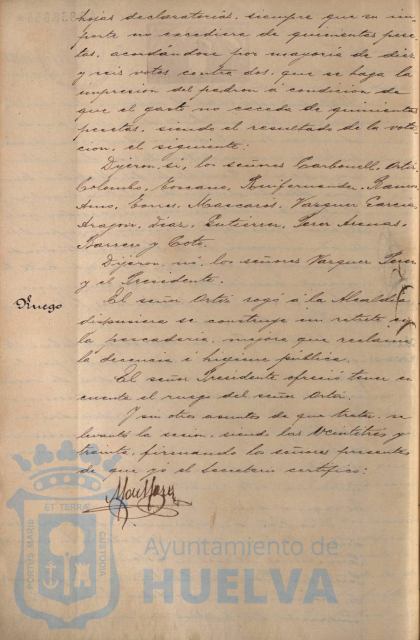 hojas declaratorias, siempre que su im
porte no excediera de quinientas pese
tas, acordándose por mayoría de diez
y seis votos contra dos, que se haga la
impresión del padron á condicion de
que el gasto no exceda de quinientas
pesetas, siendo el resultado de la vota
cion, el siguiente:
Dijeron si, los señores Carbonell, Ortí,
Colombo, Toscano, Ruifernandez, Ramos,
Amo, Torres, Mascarós, Vazquez García,
Aragon, Diaz, Gutierrez, Perez Arenas,
Barrero y Coto.
Dijeron no, los señores Vazquez Perez
y el Presidente.
Ruego
El señor Ortí rogó á la Alcaldía
dispusiera se construya un retrete en
la pescadería, mejora que reclama
la decencia é higiene pública.
El señor Presidente ofreció tener en
cuenta el ruego del señor Ortí.
Y sin otros asuntos de que tratar, se
levantó la sesion, siendo las veintitres y
treinta, firmando los señores presentes
de que yó el Secretario certifico:
PORTUS MARIS
ET TERRAE
CUSTODIA
Ayuntamiento de
HUELVA